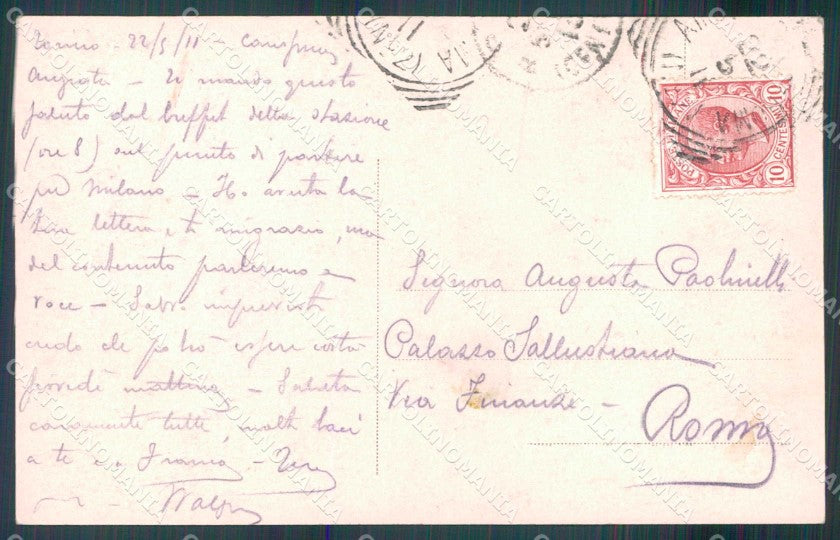 Torino - 22/5/11
Augusta - Ti mando questo
saluto dal buffet della stazione
(ore 8) sul punto di partire
per Milano - Ho avuta la
tua lettera e ti ringrazio, ma
del contenuto parleremo a
voce - Salvo imprevisti
credo che potrò esser costà
giovedì mattina - Saluta
caramente tutti, molti baci
a te e a Franca - Tuo
Signora Augusta Paolinelli
Palazzo Sallustiano
Via Finanze -
Roma
POSTE
10 CENTES 10
CARTOLINOMANIA